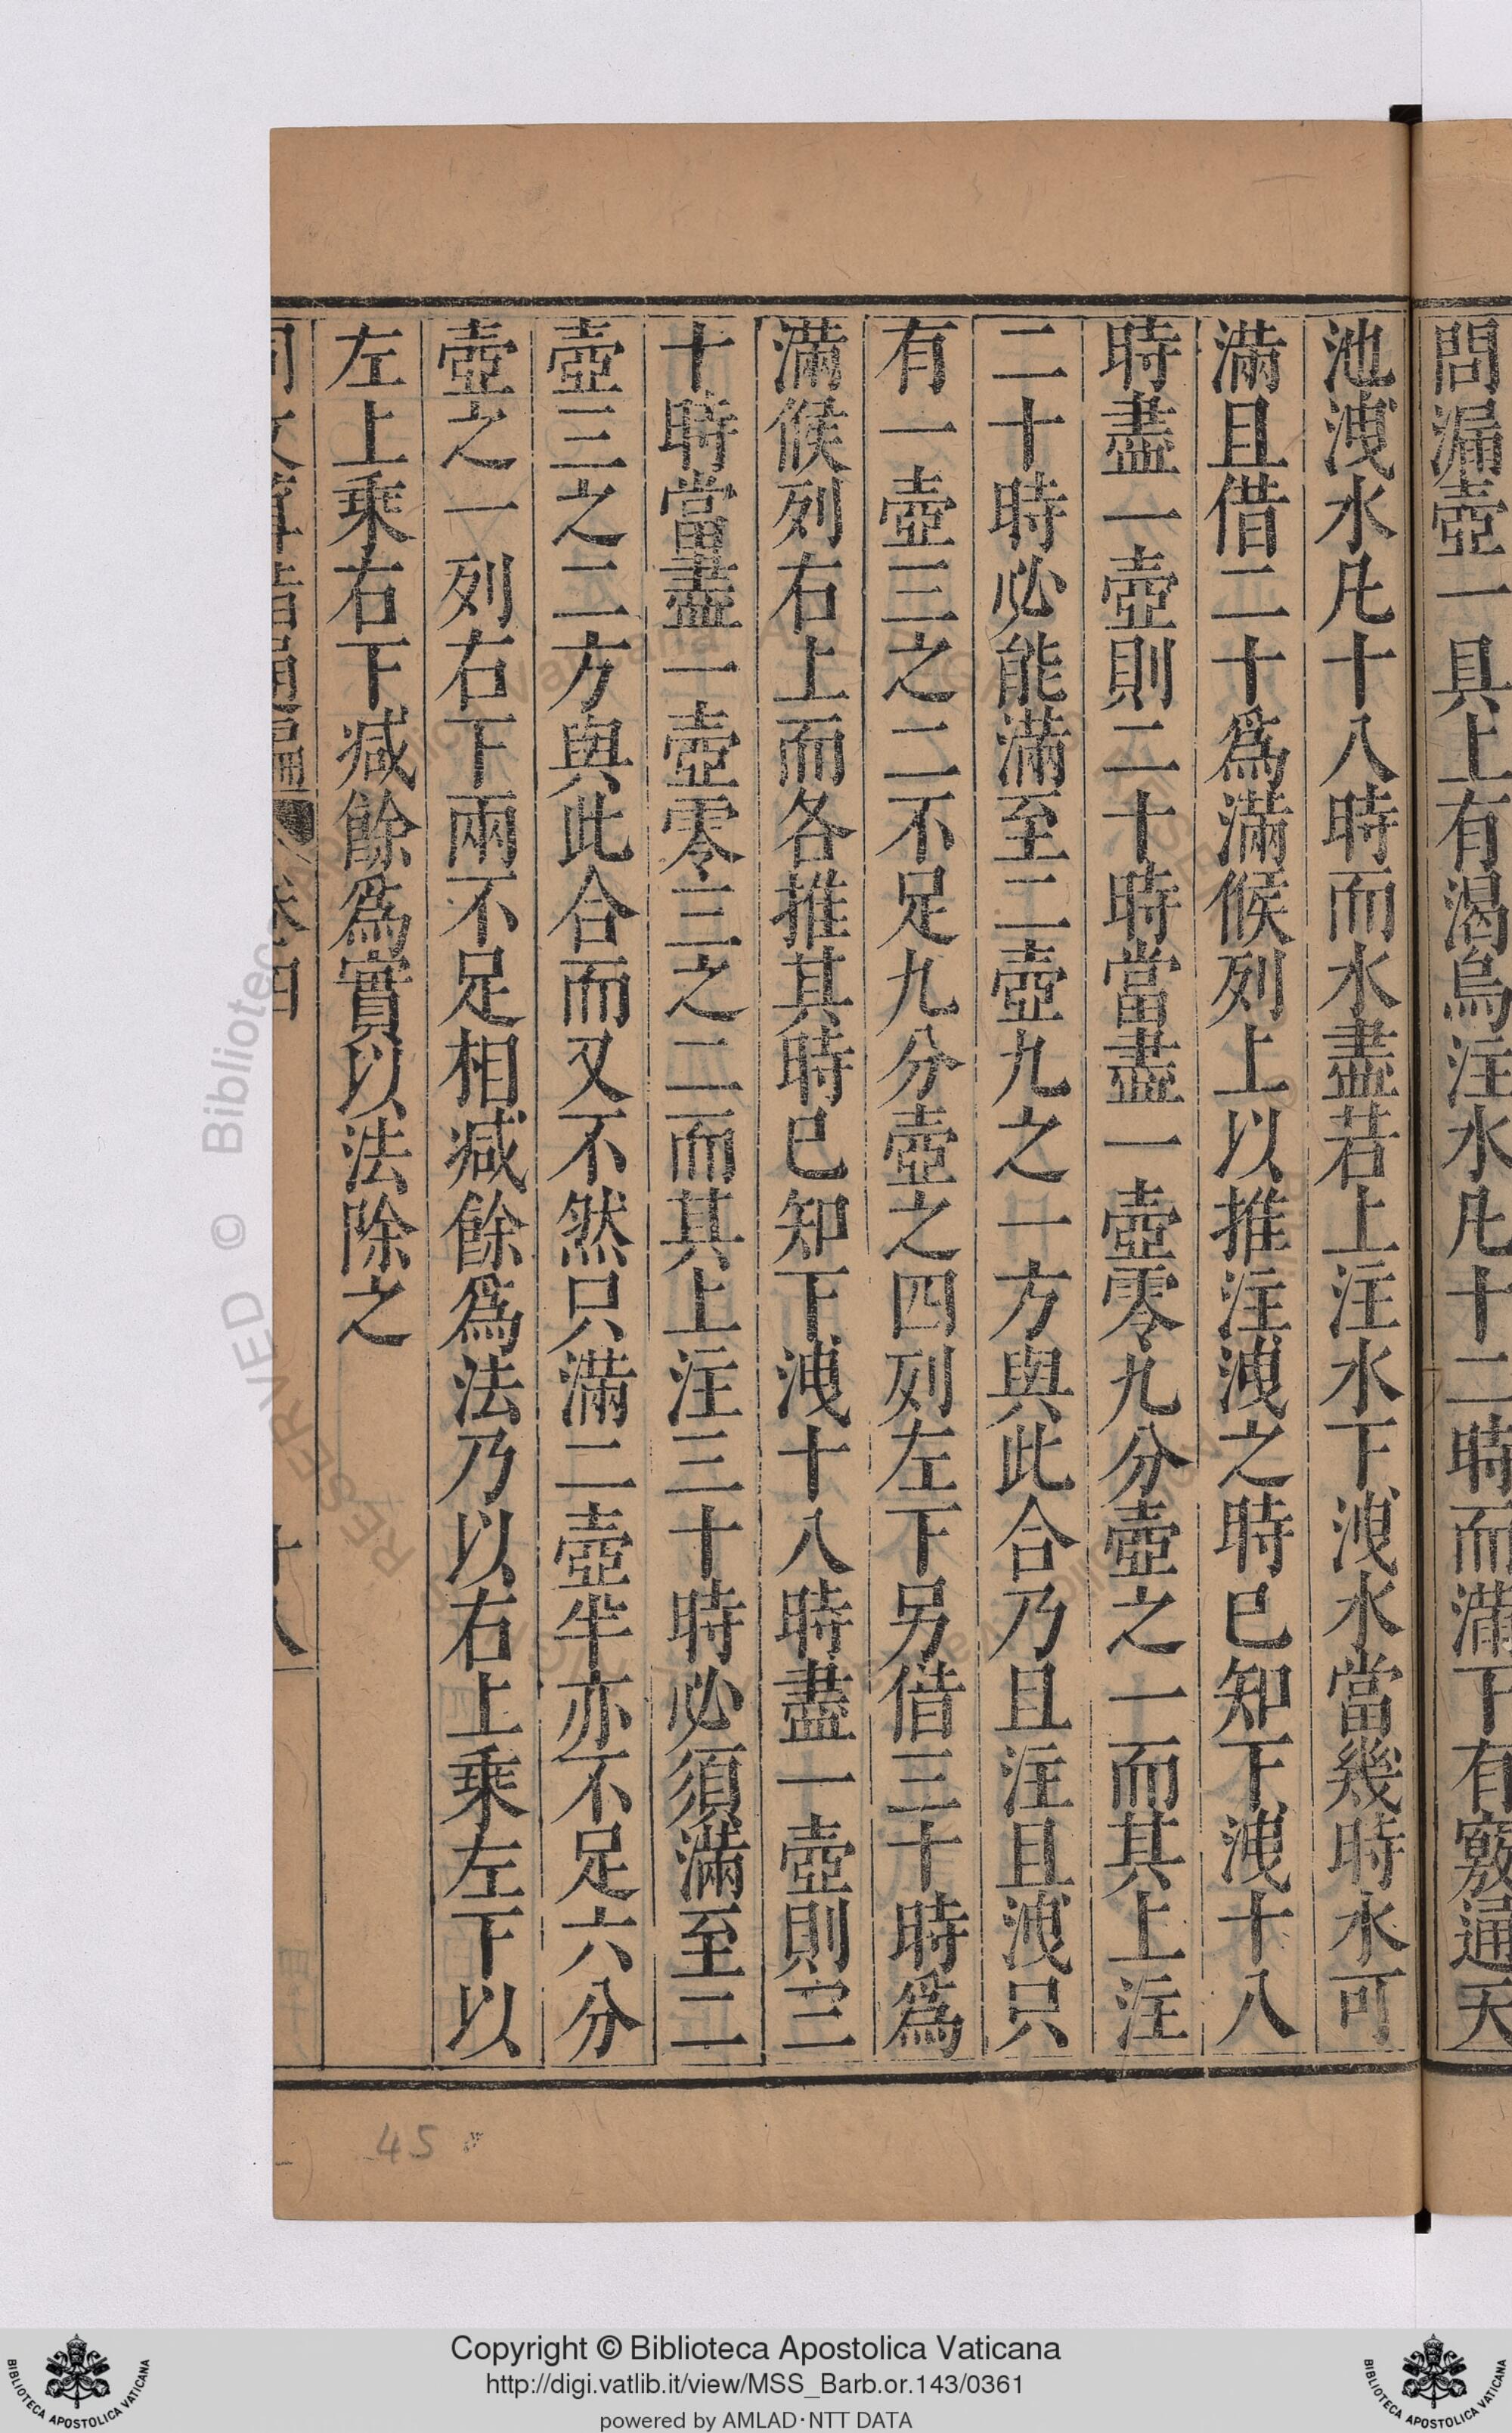 問漏壺一具上有渴烏注水凡十二時而滿下有竅通天
池洩水凡十八時而水盡若上注水下洩水當幾時水可
滿且借二十為滿候列上以推注洩之時已知下洩十八
時盡一壺則二十時當盡一壺零九分壺之一而其上注
二十時必能滿至二壺九之一方與此合乃且注且洩只
有一壺三之二不足九分壺之四列左下另借三十時為
滿候列右上而各推其時已知下洩十八時盡一壺則三
十時當盡一壺零三之二而其上注三十時必須滿至二
壺三之二方與此合而又不然只滿二壺半亦不足六分
壺之一列右下兩不足相減餘為法乃以右上乘左下以
左上乘右下減餘為實以法除之
同文算指通編 卷四 十八
45
RESERVED © Biblioteca Apostolica Vaticana
Copyright © Biblioteca Apostolica Vaticana
http://digi.vatlib.it/view/MSS_Barb.or.143/0361
powered by AMLAD·NTT DATA
BIBLIOTECA APOSTOLICA VATICANA
BIBLIOTECA APOSTOLICA VATICANA